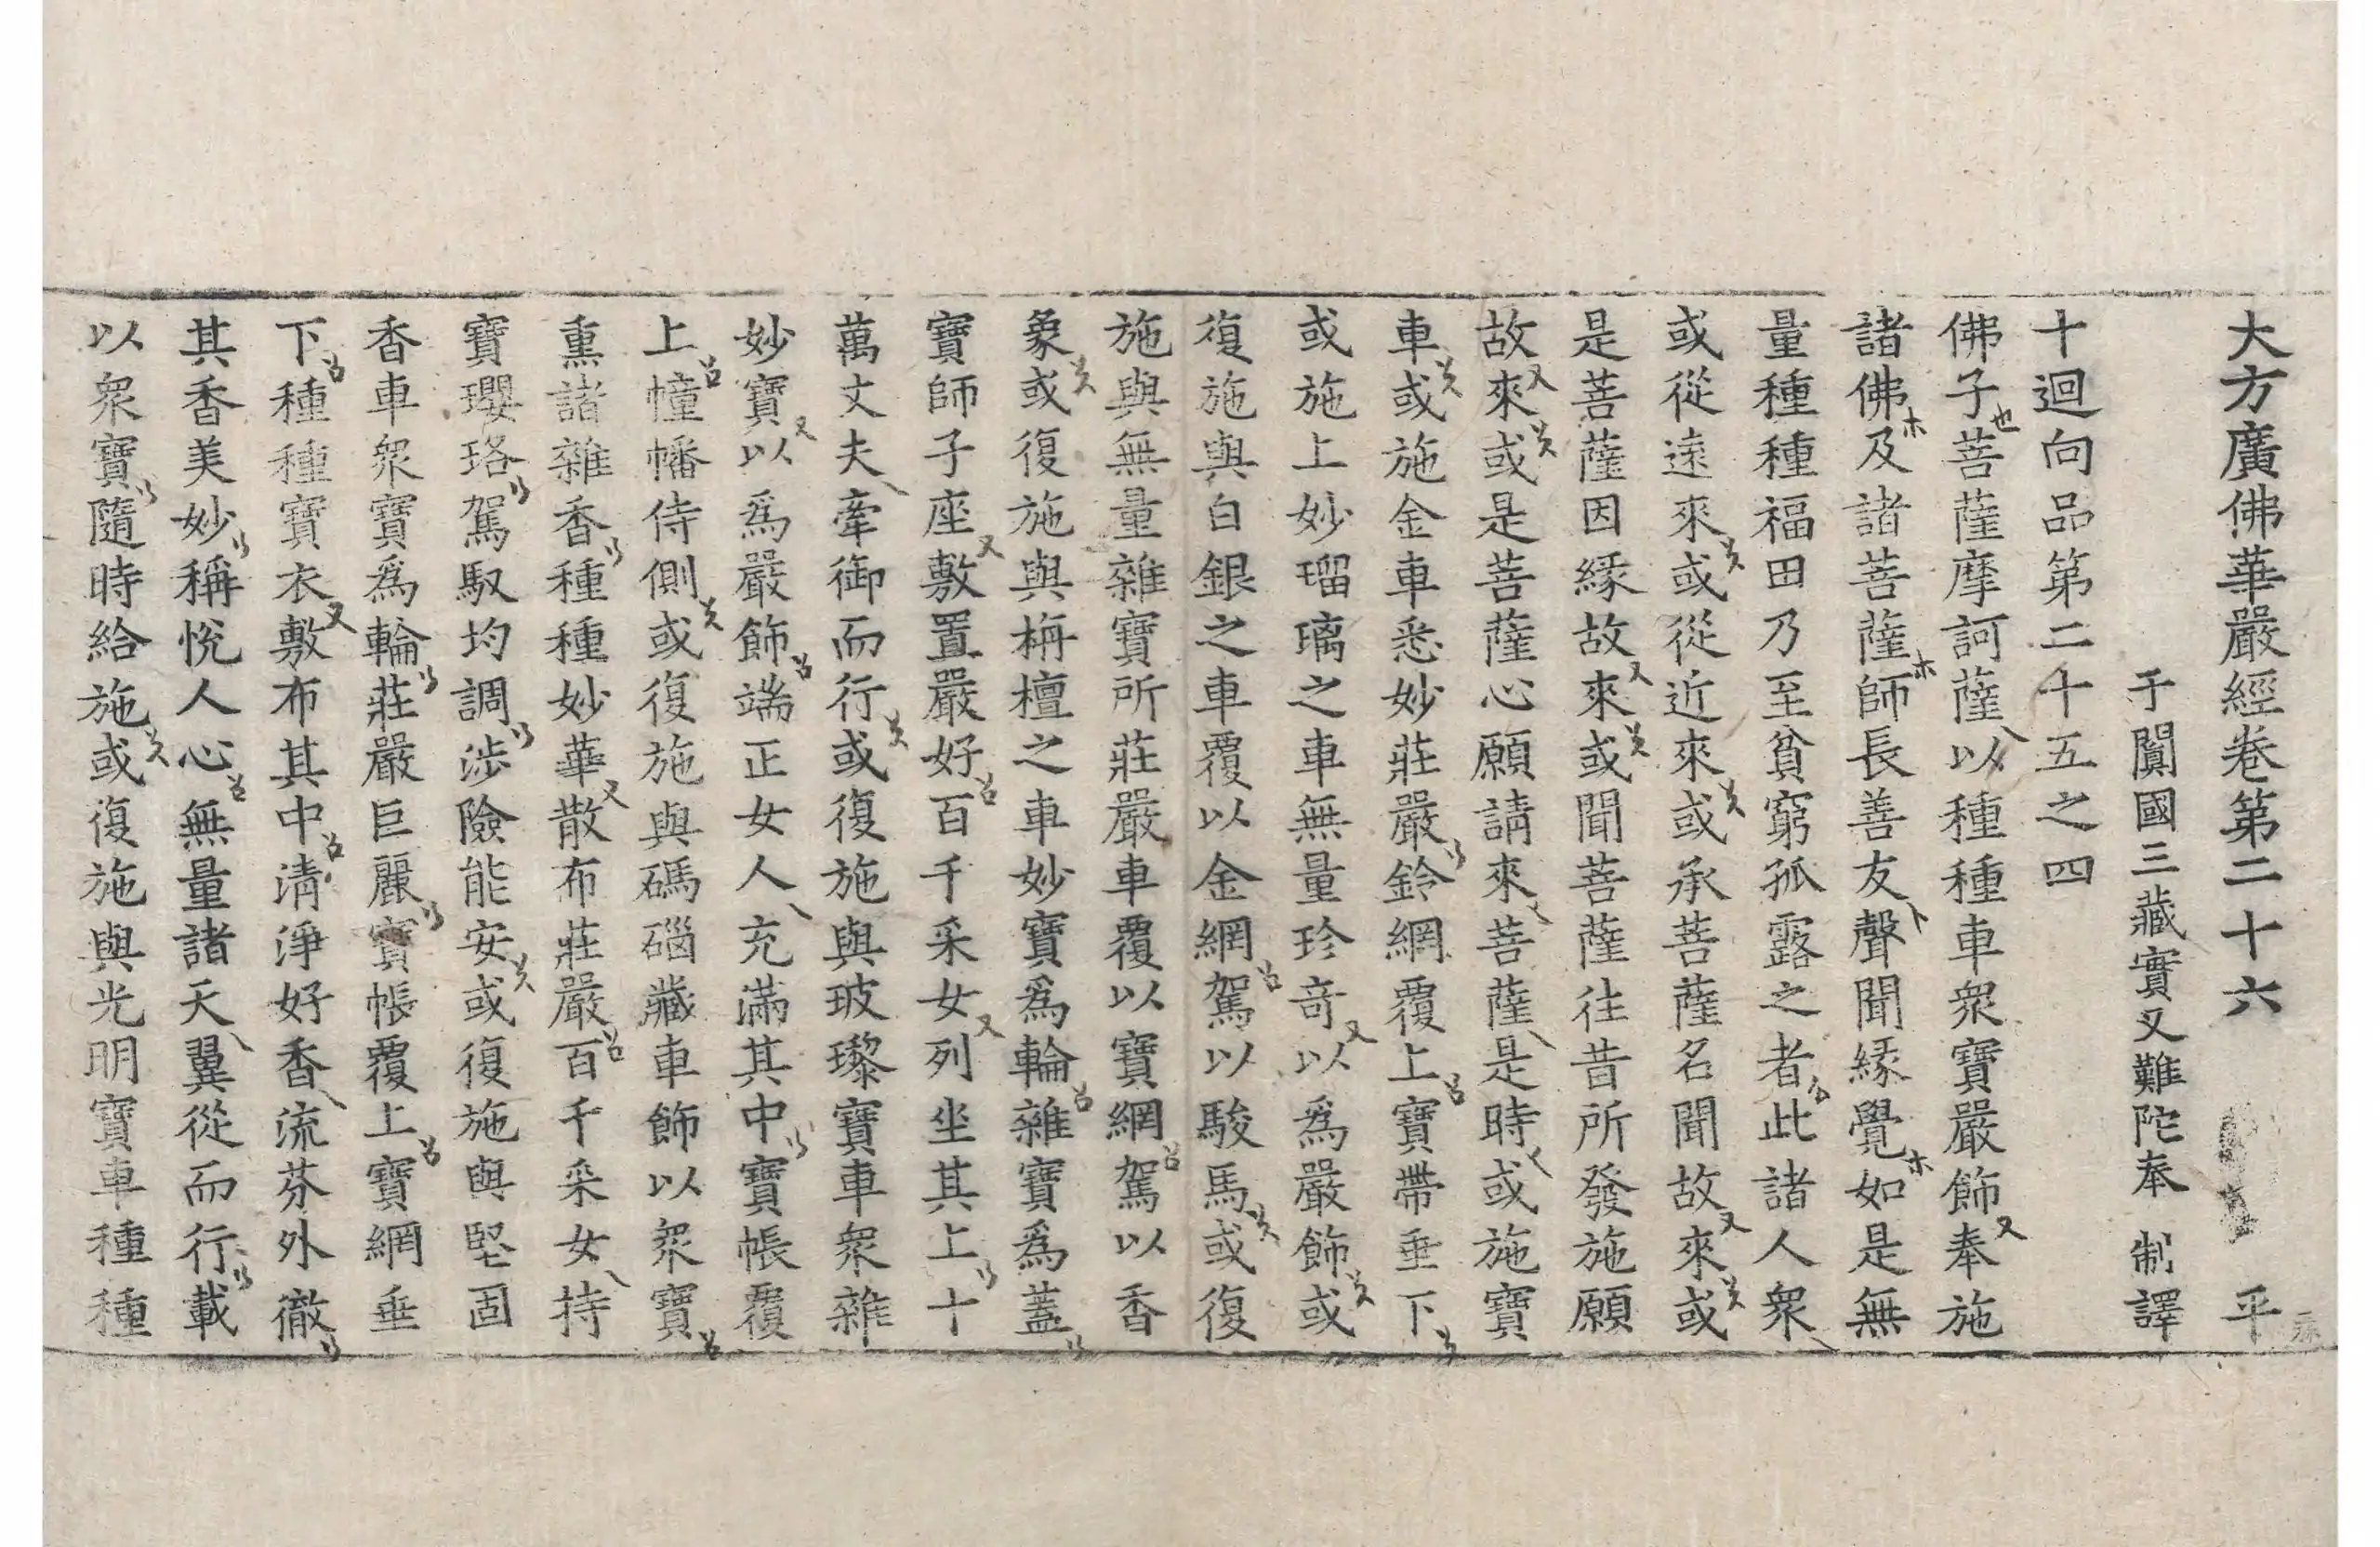 大方廣佛華嚴經卷第二十六 平
于闐國三藏實叉難陀奉 制譯
十迴向品第二十五之四
佛子菩薩摩訶薩以種種車衆寶嚴飾奉施
諸佛及諸菩薩師長善友聲聞緣覺如是無
量種種福田乃至貧窮孤露之者此諸人衆
或從遠來或從近來或承菩薩名聞故來或
是菩薩因緣故來或聞菩薩往昔所發施願
故來或是菩薩心願請來菩薩是時或施寶
車或施金車悉妙莊嚴鈴網覆上寶帶垂下
或施上妙瑠璃之車無量珍奇以爲嚴飾或
復施與白銀之車覆以金網駕以駿馬或復
施與無量雜寶所莊嚴車覆以寶網駕以香
象或復施與栴檀之車妙寶爲輪雜寶爲蓋
寶師子座敷置嚴好百千采女列坐其上十
萬丈夫牽御而行或復施與玻瓈寶車衆雜
妙寶以爲嚴飾端正女人充滿其中寶帳覆
上幢幡侍側或復施與碼碯藏車飾以衆寶
熏諸雜香種種妙華散布莊嚴百千采女持
寶瓔珞駕馭均調涉險能安或復施與堅固
香車衆寶爲輪莊嚴巨麗寶帳覆上寶網垂
下種種寶衣敷布其中淸淨好香流芬外徹
其香美妙稱悅人心無量諸天翼從而行載
以衆寶隨時給施或復施與光明寶車種種